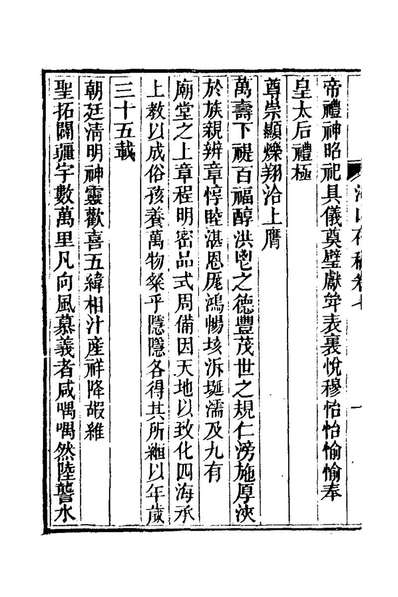 帝禮神昭祀具儀奠璧獻斝表裏悅穆怡怡愉愉奉
皇太后禮極
尊崇顯爍翔洽上膺
萬壽下禔百福醇洪鬯之德豐茂世之規仁滂施厚浹
於族親辨章惇睦湛恩厖鴻暢垓泝埏濡及九有
廟堂之上章程明密品式周備因天地以致化四海承
上教以成俗孩養萬物粲乎隱隱各得其所繩以年歲
三十五載
朝廷清明神靈歡喜五緯相汁産祥降嘏維
聖拓闢疆宇數萬里凡向風慕義者咸喁喁然陸讋水